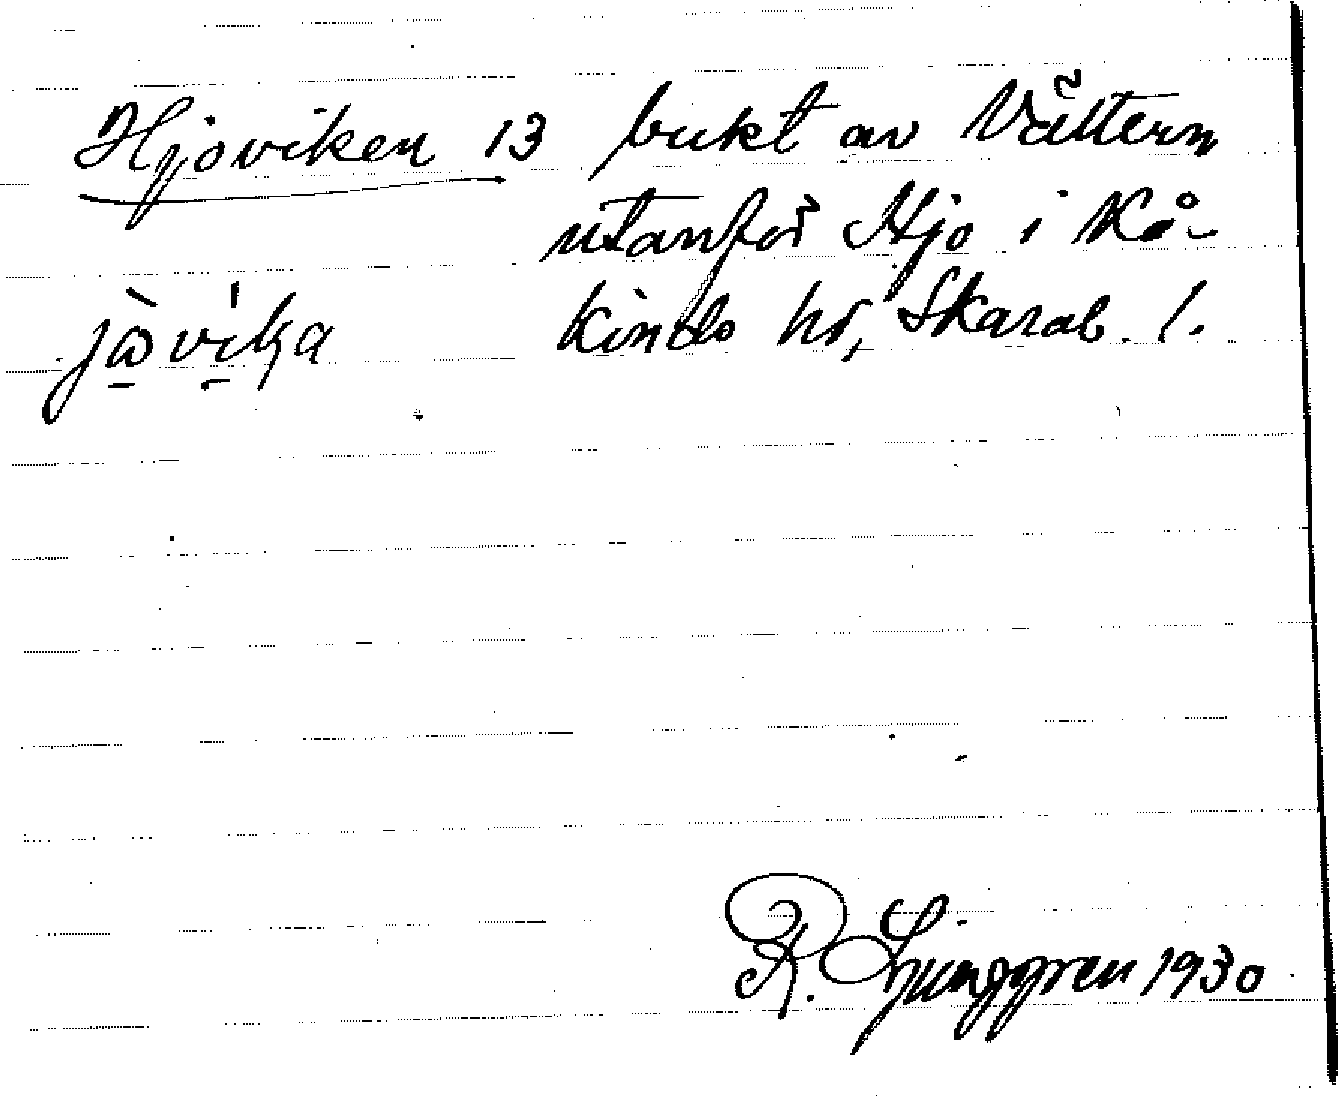 Hjoviken 13 bukt av Vättern
utanför Hjo i Kå-
jàvíka kinds hd, Skarab. l.
R. Ljunggren 1930